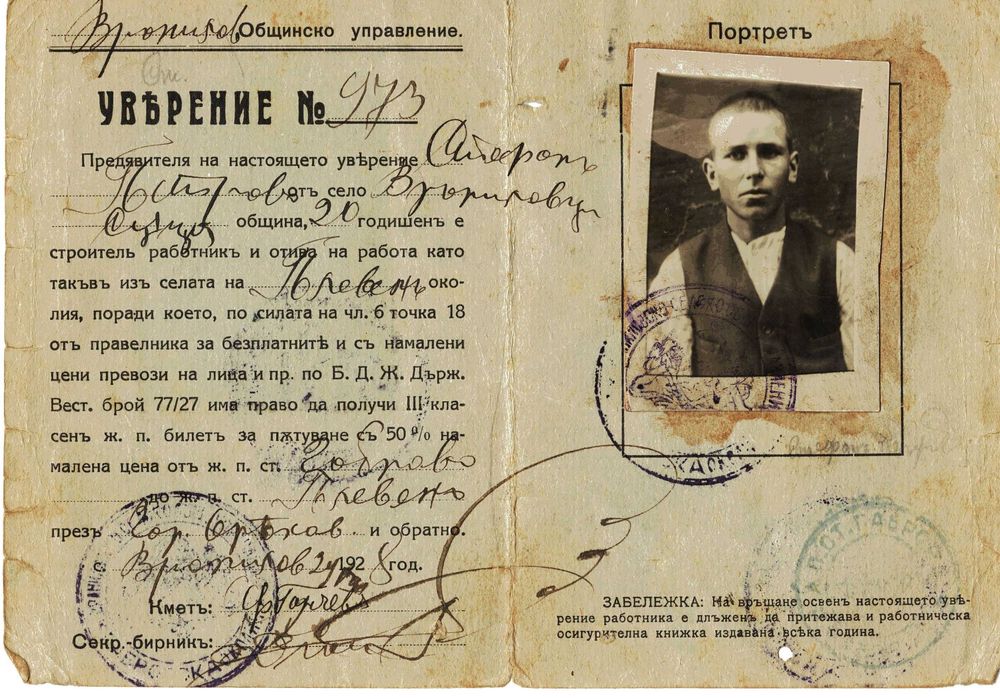 Общинско управление.
УВѢРЕНИЕ № 973
Предявителя на настоящето увѣрение
отъ село
община, 20 годишенъ е
строитель работникъ и отива на работа като
такъвъ изъ селата на Плевенъ око-
лия, поради което, по силата на чл. 6 точка 18
отъ правелника за безплатнитѣ и съ намалени
цени превози на лица и пр. по Б. Д. Ж. Държ.
Вест. брой 77/27 има право да получи III кла-
сенъ ж. п. билетъ за пѫтуване съ 50% на-
малена цена отъ ж. п. ст. Габрово
до ж. п. ст. Плевенъ
презъ Гор. Орѣхов. и обратно.
с. 1928 год.
Кметъ:
Секр.-бирникъ:
Портретъ
ЗАБЕЛЕЖКА: На връщане освенъ настоящето увѣ-
рение работника е длъженъ да притежава и работническа
осигурителна книжка издавана всѣка година.